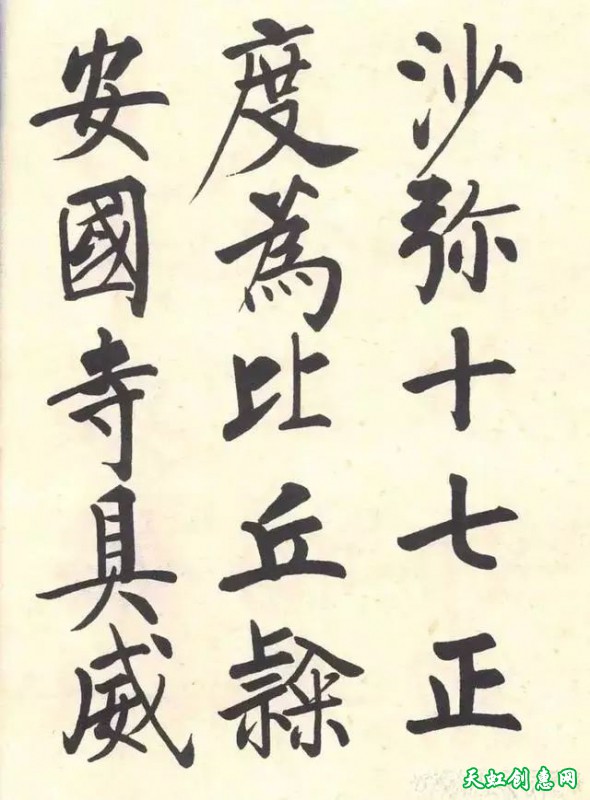 沙弥十七正
度為比丘隸
安國寺具威
天虹创惠网